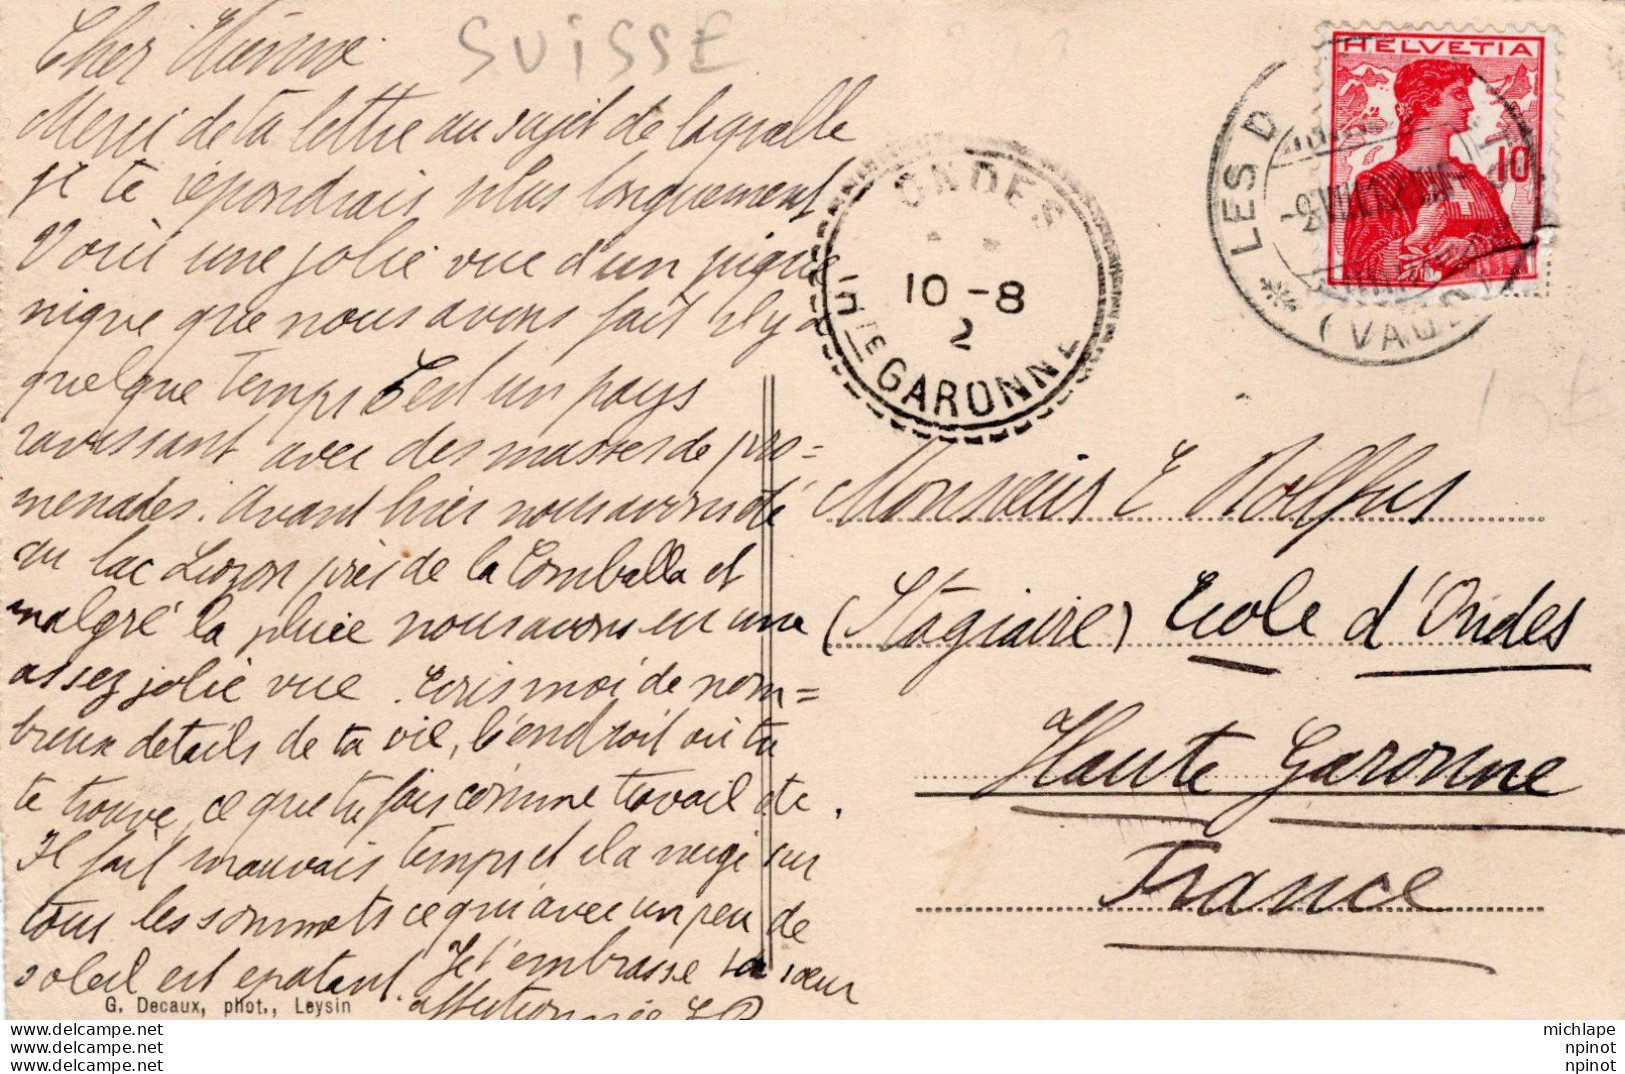 SUISSE
Cher Etienne
Merci de ta lettre au sujet de laquelle
je te répondrais plus longuement
Voici une jolie vue d'un pique
nique que nous avons fait il y a
quelque temps C'est un pays
ravissant avec des masses de pro=
menades. Avant hier nous avons été
au lac Liozon près de la Comballa et
malgré la pluie nous avons eu une
assez jolie vue. Ecris moi de nom=
breux détails de ta vie, l'endroit où tu
te trouve, ce que tu fais comme travail etc.
Il fait mauvais temps et il a neigé sur
tous les sommets ce qui avec un peu de
soleil est epatant. Je t'embrasse ta sœur
affectionnée
G. Decaux, phot., Leysin
HELVETIA
10
LES D
(VAUD)
ONDES
10 - 8
2
Hte GARONNE
Monsieur E Dollfus
(Stagiaire) Ecole d'Ondes
Haute Garonne
France
michlape
npinot
npinot
michlape
npinot
npinot